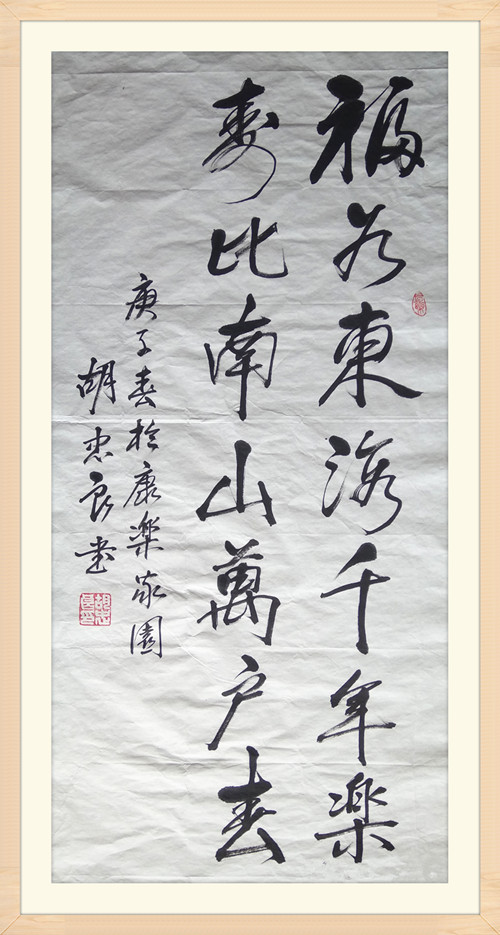 福如東海千年樂
壽比南山萬户春
庚子春於康樂家園
胡忠良书